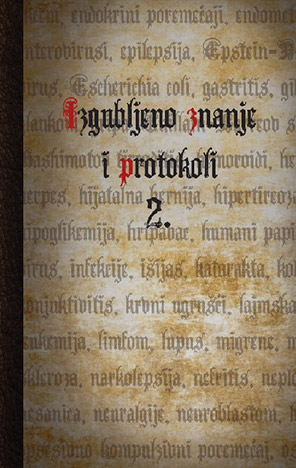 ečaj, endokrini poremećaji, endomet
nterovirusi, epilepsija, Epstein-B
irus, Escherichia coli, gastritis, gi
Izgubljeno znanje
i protokoli
2.
hashimotov hemoroidi, he
erpes, hijatalna hernija, hipertireoza
ipoglikemija, hripavac, humani papi
irus, infekcije, išijas, katarakta, kol
onjuktivitis, krvni ugrušci, lajmska
eukemija, limfom, lupus, migrene, m
skleroza, narkolepsija, nefritis, nepl
esanica, neuralgije, neuroblastom,
opsesivno kompulzivni poremećaj, o